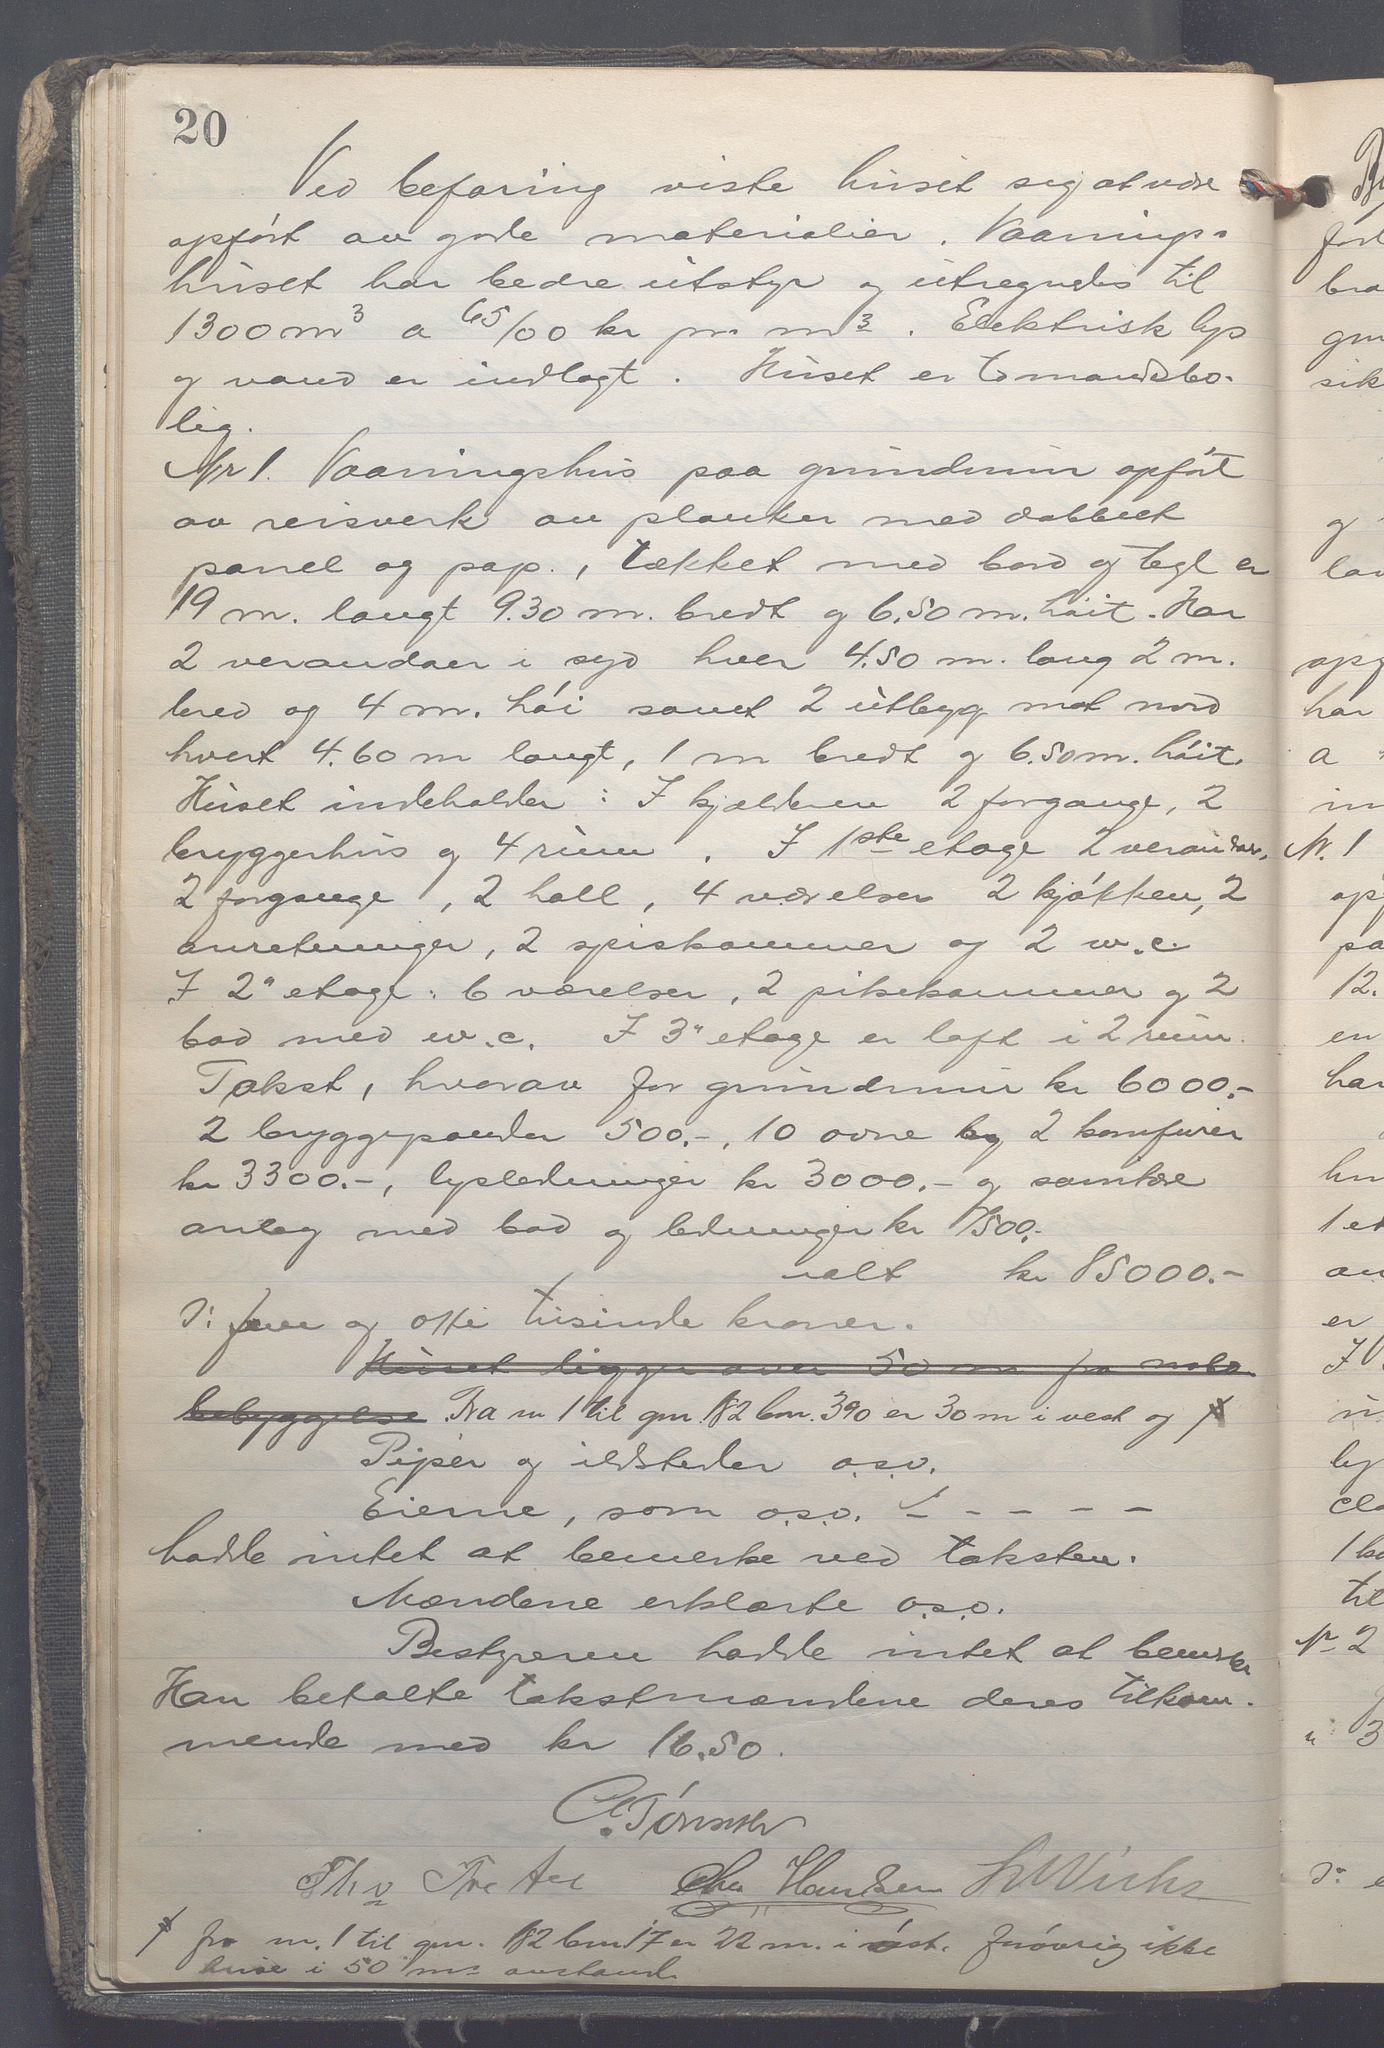 20
Ved befaring viste huset seg at være
opført av gode materialier. Vaanings-
huset har bedre utstyr og utregnedes til
1300 m³ a 65/00 kr pr. m³. Elektrisk lys
og vand er indlagt. Huset er tomandsbo-
lig.
Nr 1. Vaaningshus paa grundmur opført
av reisverk av planker med dobbelt
panel og pap., tækket med bord og tegl er
19 m. langt 9.30 m. bredt og 6.50 m. høit. Har
2 verandaer i syd hver 4.50 m. lang 2 m.
bred og 4 m. høi samt 2 utbygg mot nord
hvert 4.60 m langt, 1 m bredt og 6.50 m. høit.
Huset indeholder: I kjælderen 2 forgange, 2
bryggerhus og 4 rum. I 1ste etage 2 verandaer,
2 forgange, 2 hall, 4 værelser 2 kjøkken, 2
anretninger, 2 spiskammer og 2 w.c.
I 2" etage: 6 værelser, 2 pikekammer og 2
bad med w.c. I 3" etage er loft i 2 rum.
Takst, hvorav for grundmur kr 6000.-
2 bryggepander 500.-, 10 ovne og 2 komfurer
kr 3300.-, lysledninger kr 3000.- og sanitære
anlæg med bad og ledninger kr 7500.-
ialt kr 85000.-
ɔ: fem og otti tusinde kroner.
Huset ligger over 50 m fra
bebyggelse. Fra nr 1 til gnr. 182 bnr. 390 er 30 m i vest og ⨯
Piper og ildsteder o.s.v.
Eierne, som o.s.v. - - - - -
hadde intet at bemerke ved taksten.
Mændene erklærte o.s.v.
Bestyreren hadde intet at bemerke
Han betalte takstmændene deres tilkom-
mende med kr 16.50.
Chr Hansen
⨯ fra nr. 1 til gnr. 182 bnr 17 er 22 m. i øst. forøvrig ikke
huse i 50 m's avstand